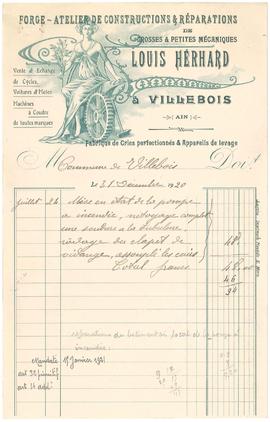 FORGE - ATELIER DE CONSTRUCTIONS & RÉPARATIONS
DE
GROSSES & PETITES MÉCANIQUES
LOUIS HERHARD
à VILLEBOIS
AIN
Vente & Échange
de Cycles,
Voitures & Motos
Machines
à Coudre
de toutes marques
Fabrique de Crics perfectionnés & Appareils de levage
M Commune de Villebois Doit
Le 31 Décembre 1920
Juillet 24 Mise en état de la pompe
à incendie, nettoyage complet
une soudure à la tubulure,
rodage du clapet de
vidanges, assoupli les cuirs 48
Total francs 48
46
94
réparations du bâtiment au local de la pompe à
incendie
Mandaté 18 Janvier 1921
art 14